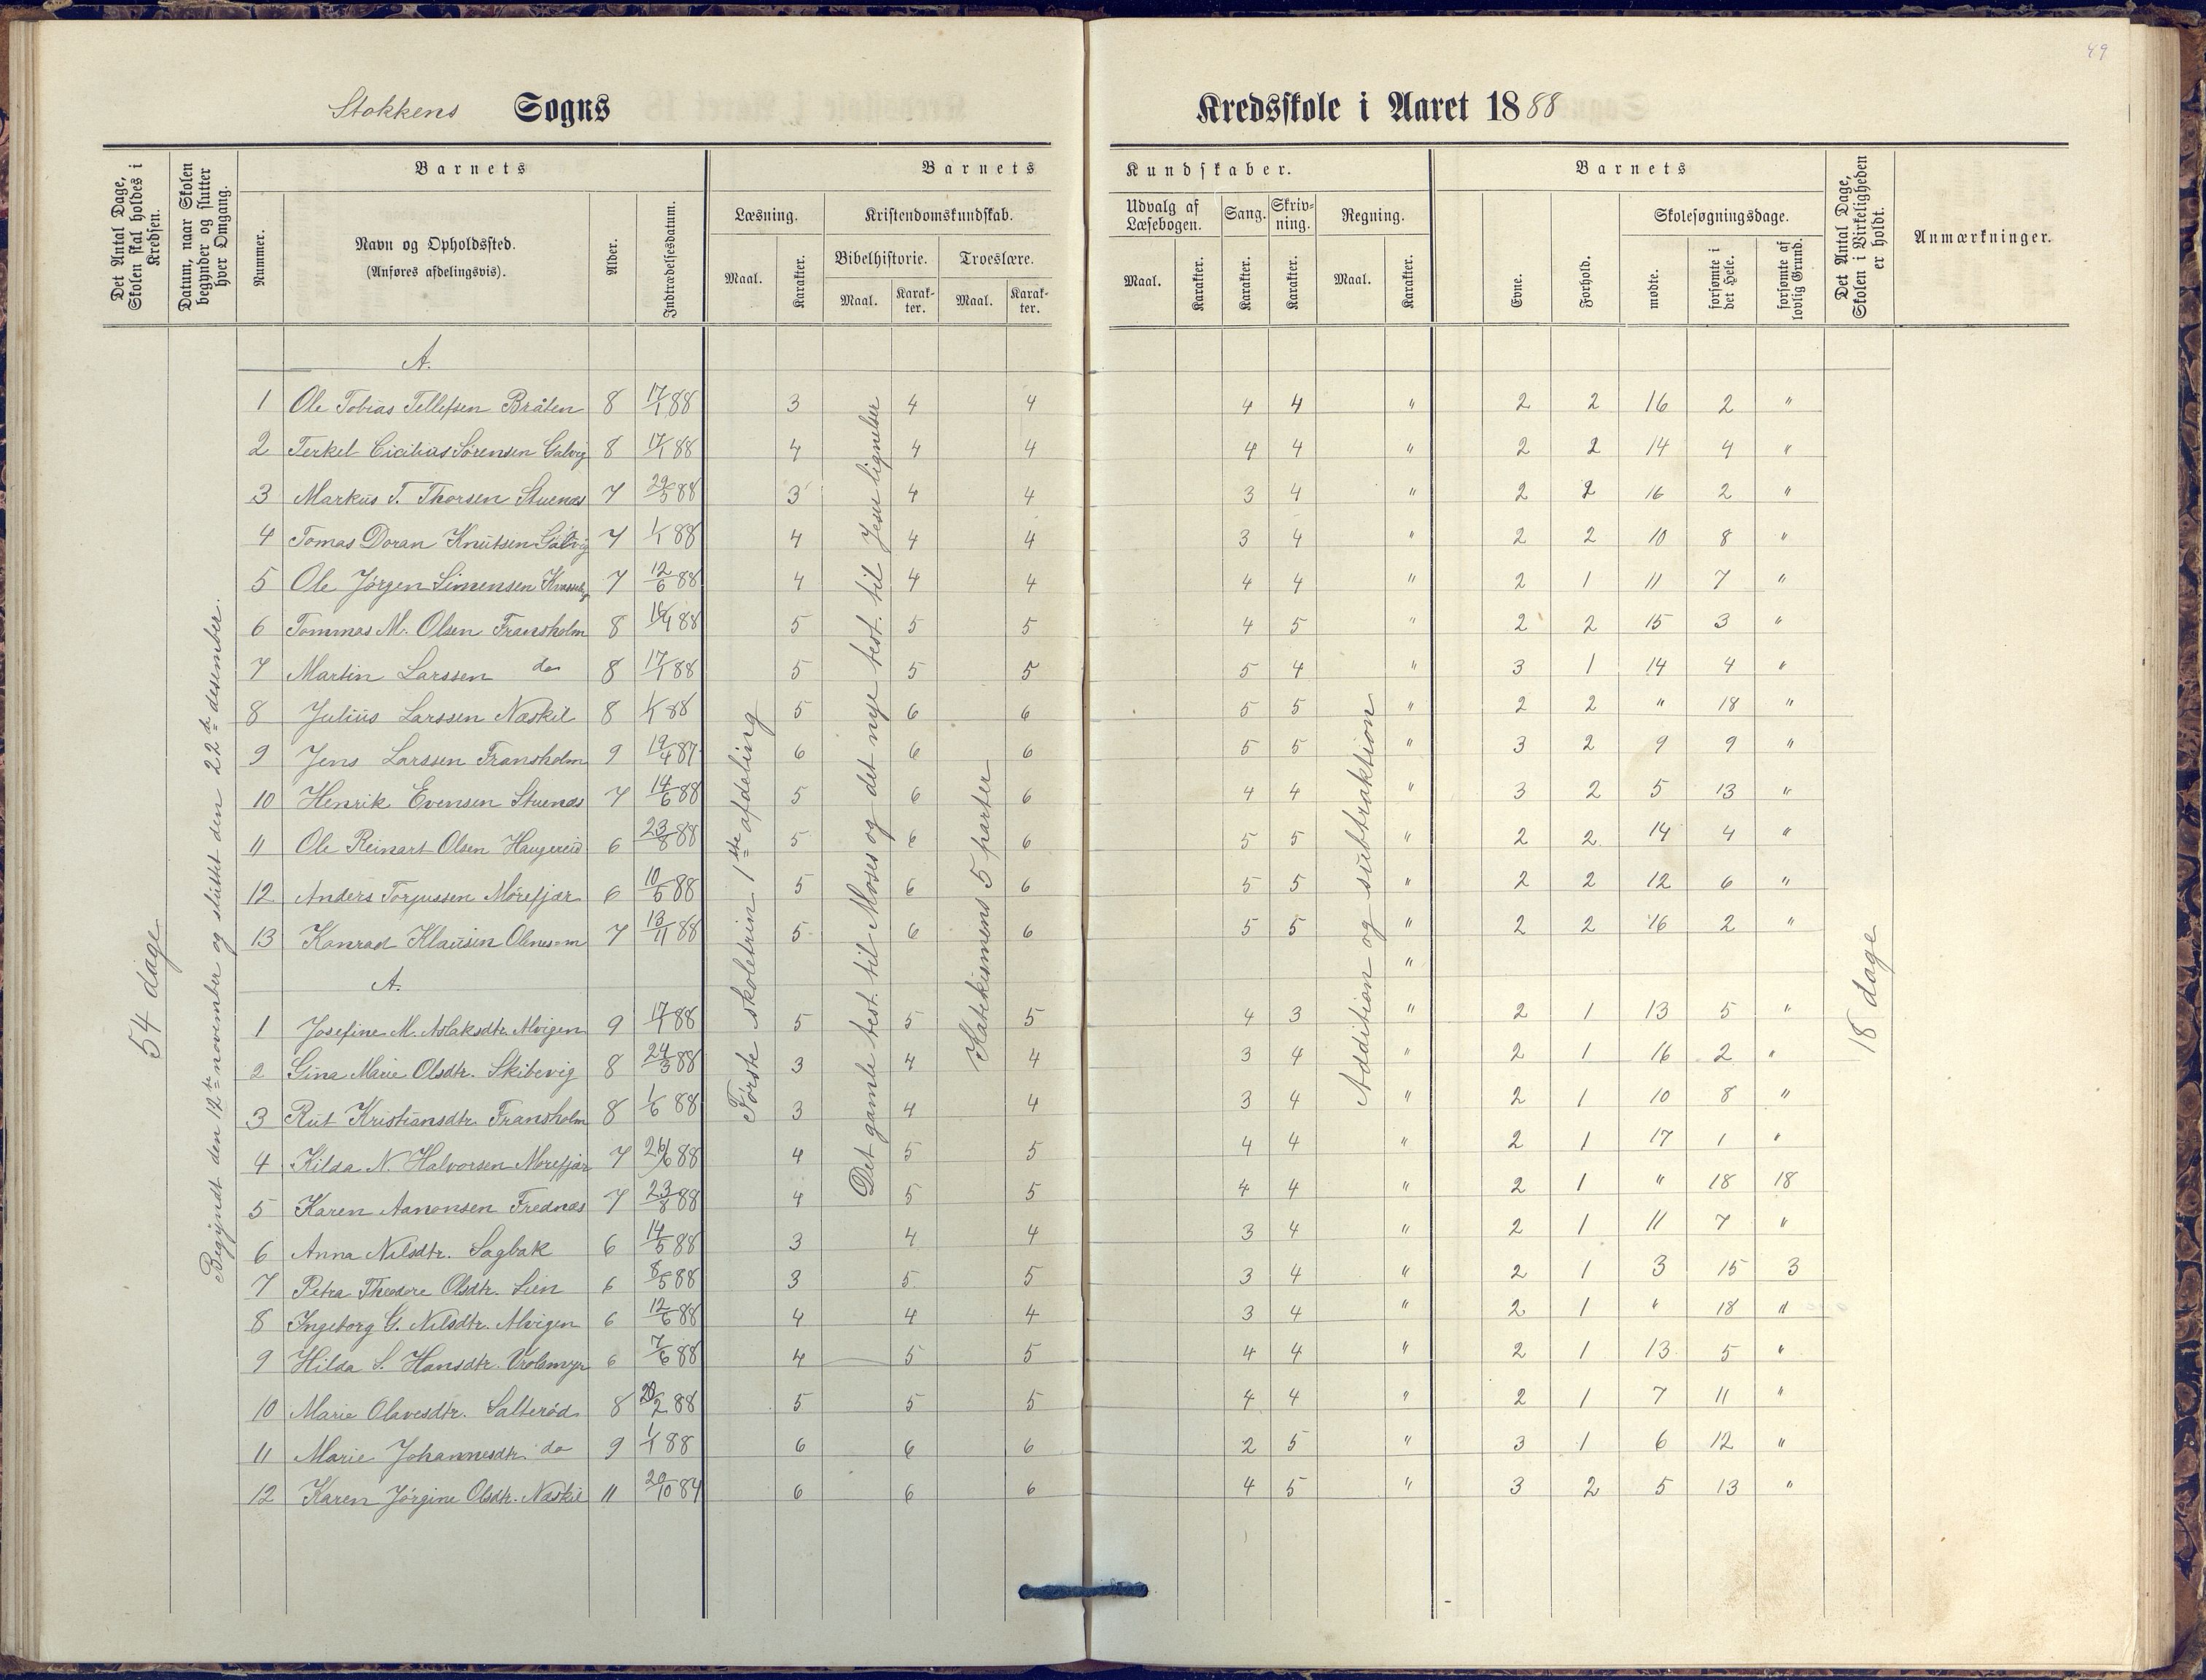 49
Stokkens Sogns Kredsskole i Aaret 1888
Det Antal Dage, Skolen skal holdes i Kredsen.
Datum, naar Skolen begynder og slutter hver Omgang.
Barnets
Nummer.
Navn og Opholdssted.
(Anføres afdelingsvis).
Alder.
Indtrædelsesdatum.
Barnets Kundskaber.
Læsning.
Maal.
Karakter.
Kristendomskundskab.
Bibelhistorie.
Maal.
Karak-ter.
Troeslære.
Maal.
Karak-ter.
Udvalg af Læsebogen.
Maal.
Karakter.
Sang.
Karakter.
Skriv-ning.
Karakter.
Regning.
Maal.
Karakter.
Barnets
Evne.
Forhold.
Skolesøgningsdage.
mødte.
forsømte i det Hele.
forsømte af lovlig Grund.
Det Antal Dage, Skolen i Virkeligheden er holdt.
Anmærkninger.
54 dage
Begyndt den 12te november og sluttet den 22de desember.
Første skoletrin 1ste afdeling
Det gamle test. til Moses og det nye test. til Jesu lignelser
Katekismens 5 parter
Addition og subtraktion
18 dage
A.
1 Ole Tobias Tellefsen Bråten 8 17/1 88 3 4 4 4 4 " 2 2 16 2 "
2 Terkel Cicilius Sørensen Salvig 8 17/1 88 4 4 4 4 4 " 2 2 14 4 "
3 Markus T. Thorsen Stuenæs 7 29/5 88 3 4 4 3 4 " 2 2 16 2 "
4 Tomas Doran Knutsen Salvig 7 1/1 88 4 4 4 3 4 " 2 2 10 8 "
5 Ole Jørgen Simensen 7 12/6 88 4 4 4 4 4 " 2 1 11 7 "
6 Tommas M. Olsen Fransholm 8 88 5 5 5 4 5 " 2 2 15 3 "
7 Martin Larssen do 8 17/1 88 5 5 5 5 4 " 3 1 14 4 "
8 Julius Larssen Næskil 8 1/1 88 5 6 6 5 5 " 2 2 " 18 "
9 Jens Larssen Fransholm 9 19/4 87 6 6 6 5 5 " 3 2 9 9 "
10 Henrik Evensen Stuenæs 7 14/6 88 5 6 6 4 4 " 3 2 5 13 "
11 Ole Reinart Olsen Haugereid 6 23/8 88 5 6 6 5 5 " 2 2 14 4 "
12 Anders Torjussen Mørefjær 6 10/5 88 5 6 6 5 5 " 2 2 12 6 "
13 Konrad Klausen 7 13/11 88 5 6 6 5 5 " 2 2 16 2 "
A. "
1 Josefine M. Aslaksdtr. Alvigen 9 17/1 88 5 5 5 4 3 " 2 1 13 5 "
2 Gina Marie Olsdtr. Skibevig 8 24/3 88 3 4 4 3 4 " 2 1 16 2 "
3 Rut Kristiansdtr. Fransholm 8 1/6 88 3 4 4 3 4 " 2 1 10 8 "
4 Hilda N. Halvorsen Mørefjær 7 26/6 88 4 5 5 4 4 " 2 1 17 1 "
5 Karen Aanonsen Frednæs 7 23/8 88 4 5 5 4 4 " 2 1 " 18 18
6 Anna Nilsdtr. Sagbak 6 14/5 88 3 4 4 3 4 " 2 1 11 7 "
7 Petra Theodore Olsdtr. Lien 6 8/5 88 3 5 5 3 4 " 2 1 3 15 3
8 Ingeborg G. Nilsdtr. Alvigen 6 12/6 88 4 4 4 3 4 " 2 1 " 18 "
9 Hilda S. Hansdtr. Vrolsmyr 6 7/6 88 4 5 5 4 4 " 2 1 13 5 "
10 Marie Olavesdtr. Salterød 8 20/2 88 5 5 5 4 4 " 2 1 7 11 "
11 Marie Johannesdtr. do 9 1/1 88 6 6 6 2 5 " 3 1 6 12 "
12 Karen Jørgine Olsdtr. Næskil 11 20/10 84 6 6 6 4 5 " 3 2 5 13 "